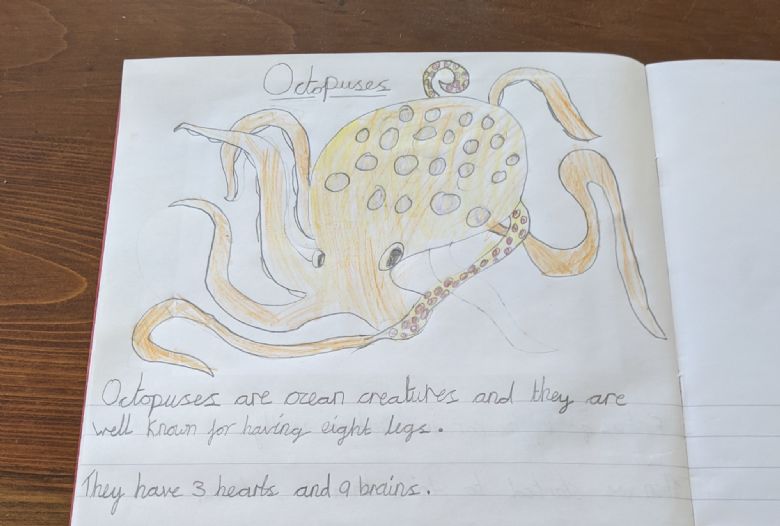 Octopuses
Octopuses are ocean creatures and they are
well known for having eight legs.
They have 3 hearts and 9 brains.